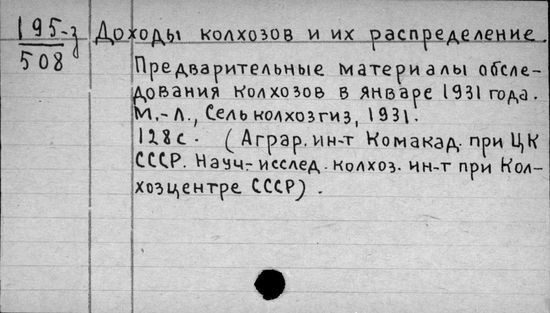 195-з Доходы колхозов и их распределение.
508
Предварительные материалы обсле-
дования колхозов в январе 1931 года.
М.-Л., Сельколхозгиз, 1931.
128с. (Аграр. ин-т Комакад. при ЦК
СССР. Науч.-исслед. колхоз. ин-т при Кол-
хозцентре СССР).